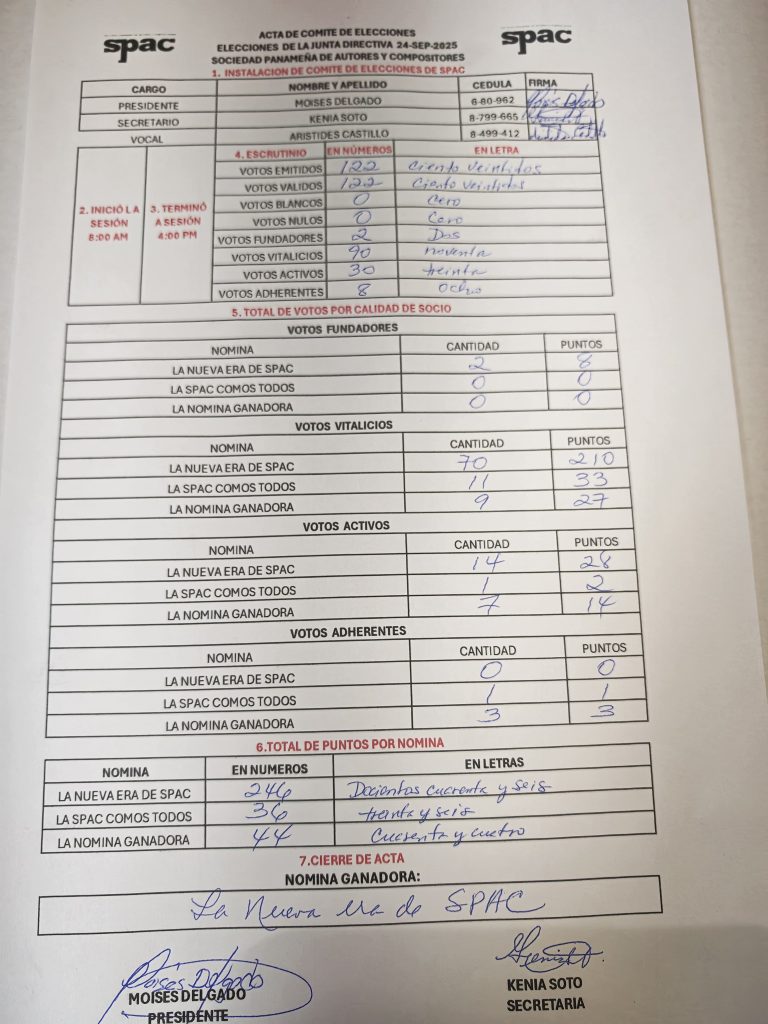 spac
spac
ACTA DE COMITE DE ELECCIONES
ELECCIONES DE LA JUNTA DIRECTIVA 24-SEP-2025
SOCIEDAD PANAMEÑA DE AUTORES Y COMPOSITORES
1. INSTALACION DE COMITE DE ELECCIONES DE SPAC
CARGO NOMBRE Y APELLIDO CEDULA FIRMA
PRESIDENTE MOISES DELGADO 6-80-962 Moisés Delgado
SECRETARIO KENIA SOTO 8-799-665
VOCAL ARISTIDES CASTILLO 8-499-412
2. INICIÓ LA SESIÓN 8:00 AM
3. TERMINÓ A SESIÓN 4:00 PM
4. ESCRUTINIO EN NÚMEROS EN LETRA
VOTOS EMITIDOS 122 Ciento veintidos
VOTOS VALIDOS 122 Ciento veintidos
VOTOS BLANCOS 0 Cero
VOTOS NULOS 0 Cero
VOTOS FUNDADORES 2 Dos
VOTOS VITALICIOS 90 noventa
VOTOS ACTIVOS 30 treinta
VOTOS ADHERENTES 8 Ocho
5. TOTAL DE VOTOS POR CALIDAD DE SOCIO
VOTOS FUNDADORES
NOMINA CANTIDAD PUNTOS
LA NUEVA ERA DE SPAC 2 8
LA SPAC COMOS TODOS 0 0
LA NOMINA GANADORA 0 0
VOTOS VITALICIOS
NOMINA CANTIDAD PUNTOS
LA NUEVA ERA DE SPAC 70 210
LA SPAC COMOS TODOS 11 33
LA NOMINA GANADORA 9 27
VOTOS ACTIVOS
NOMINA CANTIDAD PUNTOS
LA NUEVA ERA DE SPAC 14 28
LA SPAC COMOS TODOS 1 2
LA NOMINA GANADORA 7 14
VOTOS ADHERENTES
NOMINA CANTIDAD PUNTOS
LA NUEVA ERA DE SPAC 0 0
LA SPAC COMOS TODOS 1 1
LA NOMINA GANADORA 3 3
6.TOTAL DE PUNTOS POR NOMINA
NOMINA EN NUMEROS EN LETRAS
LA NUEVA ERA DE SPAC 246 Docientos cuarenta y seis
LA SPAC COMOS TODOS 36 treinta y seis
LA NOMINA GANADORA 44 Cuarenta y cuatro
7.CIERRE DE ACTA
NOMINA GANADORA:
La Nueva era de SPAC
Moisés Delgado
MOISES DELGADO
PRESIDENTE
KENIA SOTO
SECRETARIA